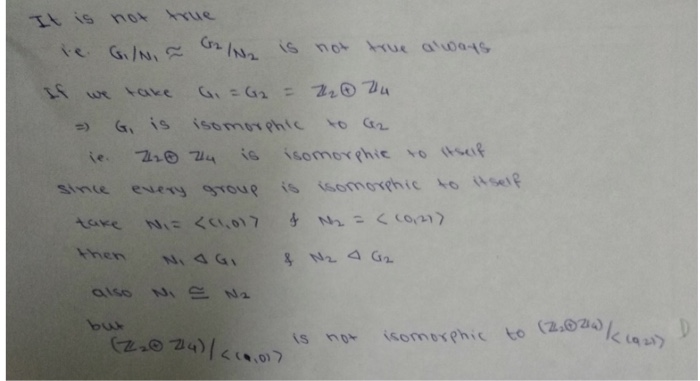 It is not true
i.e. G₁/N₁ ≈ G₂/N₂ is not true always
If we take G₁ = G₂ = ℤ₂⊕ℤ₄
⇒ G₁ is isomorphic to G₂
ie. ℤ₂⊕ℤ₄ is isomorphic to itself
since every group is isomorphic to itself
take N₁ = <(1,0)> & N₂ = <(0,2)>
then N₁ ⊲ G₁ & N₂ ⊲ G₂
also N₁ ≅ N₂
but (ℤ₂⊕ℤ₄)/<(1,0)> is not isomorphic to (ℤ₂⊕ℤ₄)/<(0,2)>